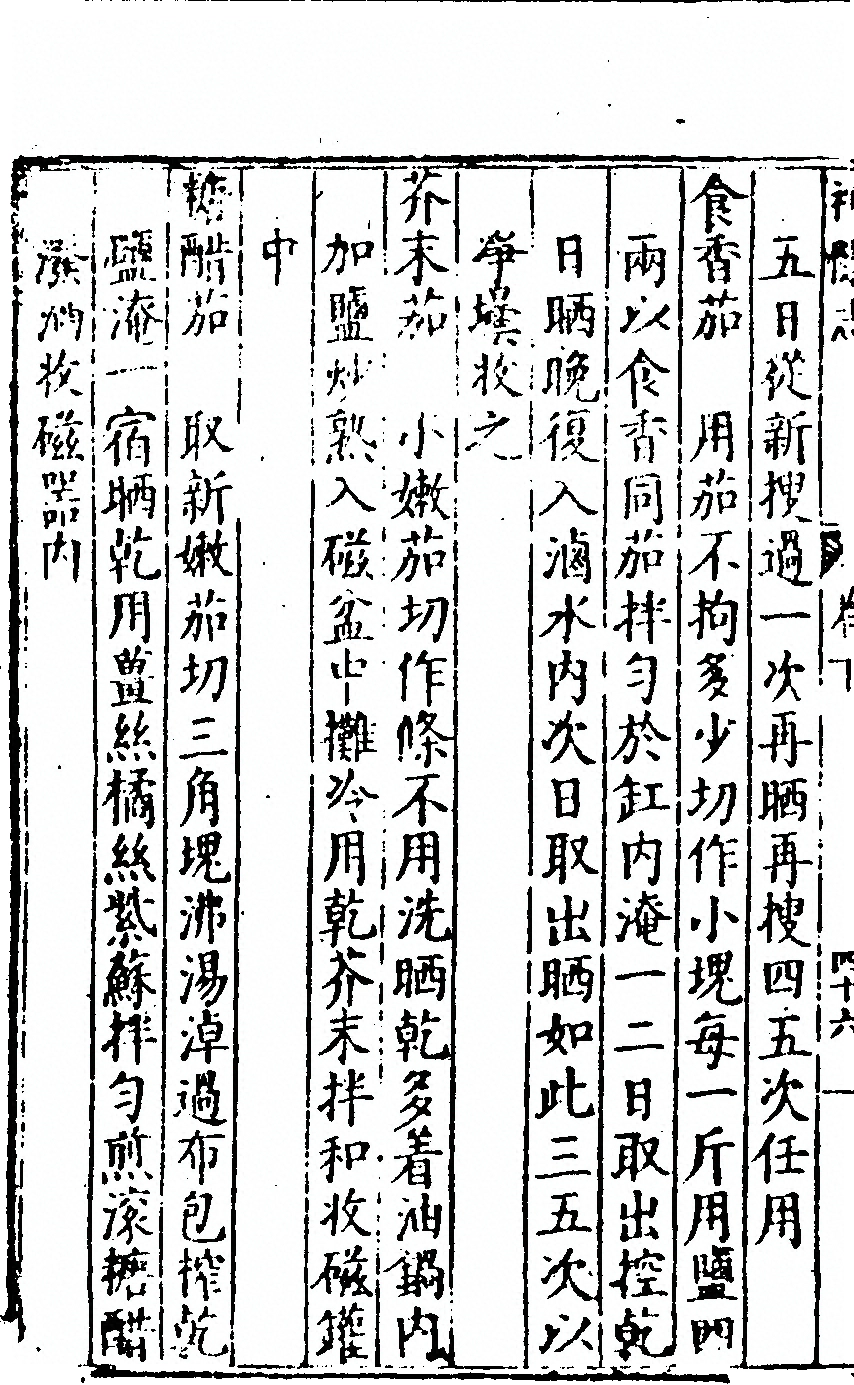 卷下
四十六
五日從新搜過一次再晒再搜四五次任用
食香茄　用茄不拘多少切作小塊每一斤用鹽四
兩以食香同茄拌匀於缸内淹一二日取出控乾
日晒晚復入滷水内次日取出晒如此三五次以
爭墣收之
芥末茄　小嫩茄切作條不用洗晒乾多着油鍋内
加鹽炒熟入磁盆中攤冷用乾芥末拌和收磁罐
中
糖醋茄　取新嫩茄切三角塊沸湯淖過布包榨乾
鹽淹一宿晒乾用薑絲橘絲紫蘇拌匀煎滚糖醋
潑納收磁器内